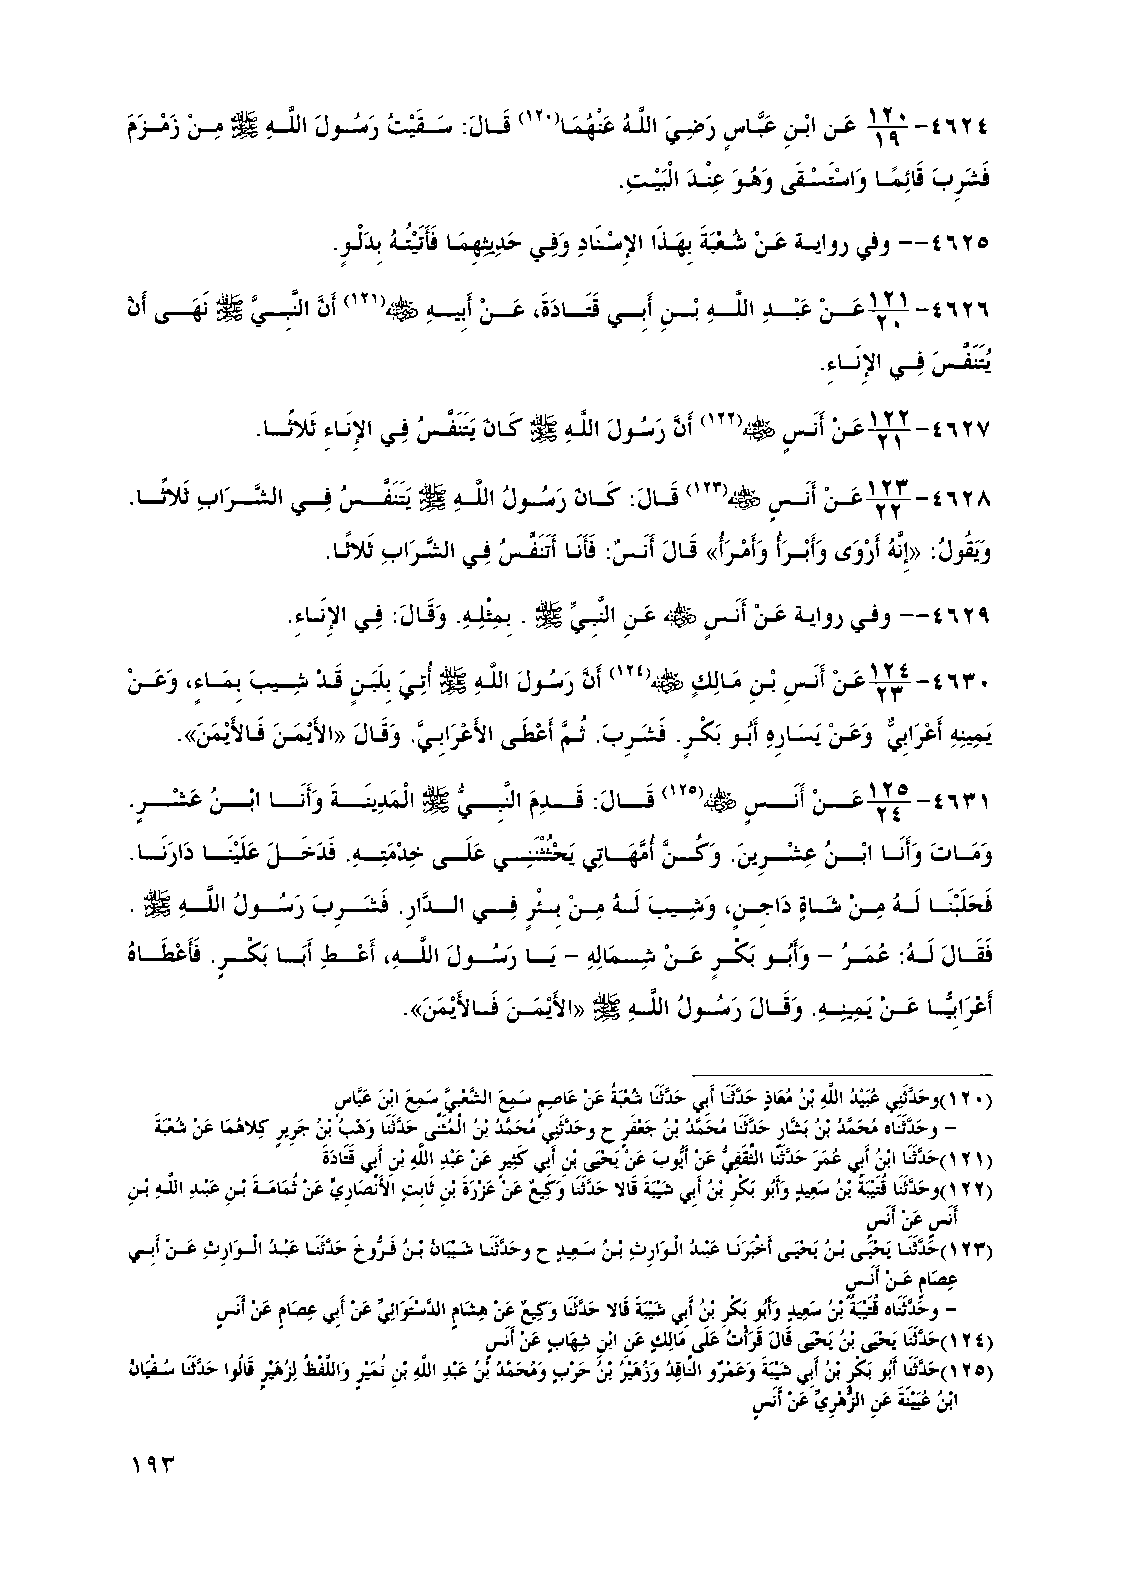 ٤٦٢٤- ١٢٠/١٩ عَنِ ابْنِ عَبَّاسٍ رَضِيَ اللَّهُ عَنْهُمَا(١٢٠) قَالَ: سَقَيْتُ رَسُولَ اللَّهِ ﷺ مِنْ زَمْزَمَ
فَشَرِبَ قَائِمًا وَاسْتَسْقَى وَهُوَ عِنْدَ الْبَيْتِ.
٤٦٢٥-- وفي رواية عَنْ شُعْبَةَ بِهَذَا الإِسْنَادِ وَفِي حَدِيثِهِمَا فَأَتَيْتُهُ بِدَلْوٍ.
٤٦٢٦- ١٢١/٢٠ عَنْ عَبْدِ اللَّهِ بْنِ أَبِي قَتَادَةَ، عَنْ أَبِيهِ ﵁(١٢١) أَنَّ النَّبِيَّ ﷺ نَهَى أَنْ
يُتَنَفَّسَ فِي الإِنَاءِ.
٤٦٢٧- ١٢٢/٢١ عَنْ أَنَسٍ ﵁(١٢٢) أَنَّ رَسُولَ اللَّهِ ﷺ كَانَ يَتَنَفَّسُ فِي الإِنَاءِ ثَلاثًا.
٤٦٢٨- ١٢٣/٢٢ عَنْ أَنَسٍ ﵁(١٢٣) قَالَ: كَانَ رَسُولُ اللَّهِ ﷺ يَتَنَفَّسُ فِي الشَّرَابِ ثَلاثًا.
وَيَقُولُ: «إِنَّهُ أَرْوَى وَأَبْرَأُ وَأَمْرَأُ» قَالَ أَنَسٌ: فَأَنَا أَتَنَفَّسُ فِي الشَّرَابِ ثَلاثًا.
٤٦٢٩-- وفي رواية عَنْ أَنَسٍ ﵁ عَنِ النَّبِيِّ ﷺ . بِمِثْلِهِ. وَقَالَ: فِي الإِنَاءِ.
٤٦٣٠- ١٢٤/٢٣ عَنْ أَنَسِ بْنِ مَالِكٍ ﵁(١٢٤) أَنَّ رَسُولَ اللَّهِ ﷺ أُتِيَ بِلَبَنٍ قَدْ شِيبَ بِمَاءٍ، وَعَنْ
يَمِينِهِ أَعْرَابِيٌّ وَعَنْ يَسَارِهِ أَبُو بَكْرٍ. فَشَرِبَ. ثُمَّ أَعْطَى الأَعْرَابِيَّ. وَقَالَ «الأَيْمَنَ فَالأَيْمَنَ».
٤٦٣١- ١٢٥/٢٤ عَنْ أَنَسٍ ﵁(١٢٥) قَالَ: قَدِمَ النَّبِيُّ ﷺ الْمَدِينَةَ وَأَنَا ابْنُ عَشْرٍ.
وَمَاتَ وَأَنَا ابْنُ عِشْرِينَ. وَكُنَّ أُمَّهَاتِي يَحْثُثْنَنِي عَلَى خِدْمَتِهِ. فَدَخَلَ عَلَيْنَا دَارَنَا.
فَحَلَبْنَا لَهُ مِنْ شَاةٍ دَاجِنٍ، وَشِيبَ لَهُ مِنْ بِئْرٍ فِي الدَّارِ. فَشَرِبَ رَسُولُ اللَّهِ ﷺ .
فَقَالَ لَهُ: عُمَرُ – وَأَبُو بَكْرٍ عَنْ شِمَالِهِ – يَا رَسُولَ اللَّهِ، أَعْطِ أَبَا بَكْرٍ. فَأَعْطَاهُ
أَعْرَابِيًّا عَنْ يَمِينِهِ. وَقَالَ رَسُولُ اللَّهِ ﷺ «الأَيْمَنَ فَالأَيْمَنَ».
(١٢٠)وحَدَّثَنِي عُبَيْدُ اللَّهِ بْنُ مُعَاذٍ حَدَّثَنَا أَبِي حَدَّثَنَا شُعْبَةُ عَنْ عَاصِمٍ سَمِعَ الشَّعْبِيَّ سَمِعَ ابْنَ عَبَّاسٍ
– وحَدَّثَنَاه مُحَمَّدُ بْنُ بَشَّارٍ حَدَّثَنَا مُحَمَّدُ بْنُ جَعْفَرٍ ح وحَدَّثَنِي مُحَمَّدُ بْنُ الْمُثَنَّى حَدَّثَنَا وَهْبُ بْنُ جَرِيرٍ كِلاهُمَا عَنْ شُعْبَةَ
(١٢١)حَدَّثَنَا ابْنُ أَبِي عُمَرَ حَدَّثَنَا الثَّقَفِيُّ عَنْ أَيُّوبَ عَنْ يَحْيَى بْنِ أَبِي كَثِيرٍ عَنْ عَبْدِ اللَّهِ بْنِ أَبِي قَتَادَةَ
(١٢٢)وحَدَّثَنَا قُتَيْبَةُ بْنُ سَعِيدٍ وَأَبُو بَكْرِ بْنُ أَبِي شَيْبَةَ قَالا حَدَّثَنَا وَكِيعٌ عَنْ عَزْرَةَ بْنِ ثَابِتٍ الأَنْصَارِيِّ عَنْ ثُمَامَةَ بْنِ عَبْدِ اللَّهِ بْنِ
أَنَسٍ عَنْ أَنَسٍ
(١٢٣)حَدَّثَنَا يَحْيَى بْنُ يَحْيَى أَخْبَرَنَا عَبْدُ الْوَارِثِ بْنُ سَعِيدٍ ح وحَدَّثَنَا شَيْبَانُ بْنُ فَرُّوخَ حَدَّثَنَا عَبْدُ الْوَارِثِ عَنْ أَبِي
عِصَامٍ عَنْ أَنَسٍ
– وحَدَّثَنَاه قُتَيْبَةُ بْنُ سَعِيدٍ وَأَبُو بَكْرِ بْنُ أَبِي شَيْبَةَ قَالا حَدَّثَنَا وَكِيعٌ عَنْ هِشَامٍ الدَّسْتَوَائِيِّ عَنْ أَبِي عِصَامٍ عَنْ أَنَسٍ
(١٢٤)حَدَّثَنَا يَحْيَى بْنُ يَحْيَى قَالَ قَرَأْتُ عَلَى مَالِكٍ عَنِ ابْنِ شِهَابٍ عَنْ أَنَسٍ
(١٢٥)حَدَّثَنَا أَبُو بَكْرِ بْنُ أَبِي شَيْبَةَ وَعَمْرٌو النَّاقِدُ وَزُهَيْرُ بْنُ حَرْبٍ وَمُحَمَّدُ بْنُ عَبْدِ اللَّهِ بْنِ نُمَيْرٍ وَاللَّفْظُ لِزُهَيْرٍ قَالُوا حَدَّثَنَا سُفْيَانُ
ابْنُ عُيَيْنَةَ عَنِ الزُّهْرِيِّ عَنْ أَنَسٍ
١٩٣